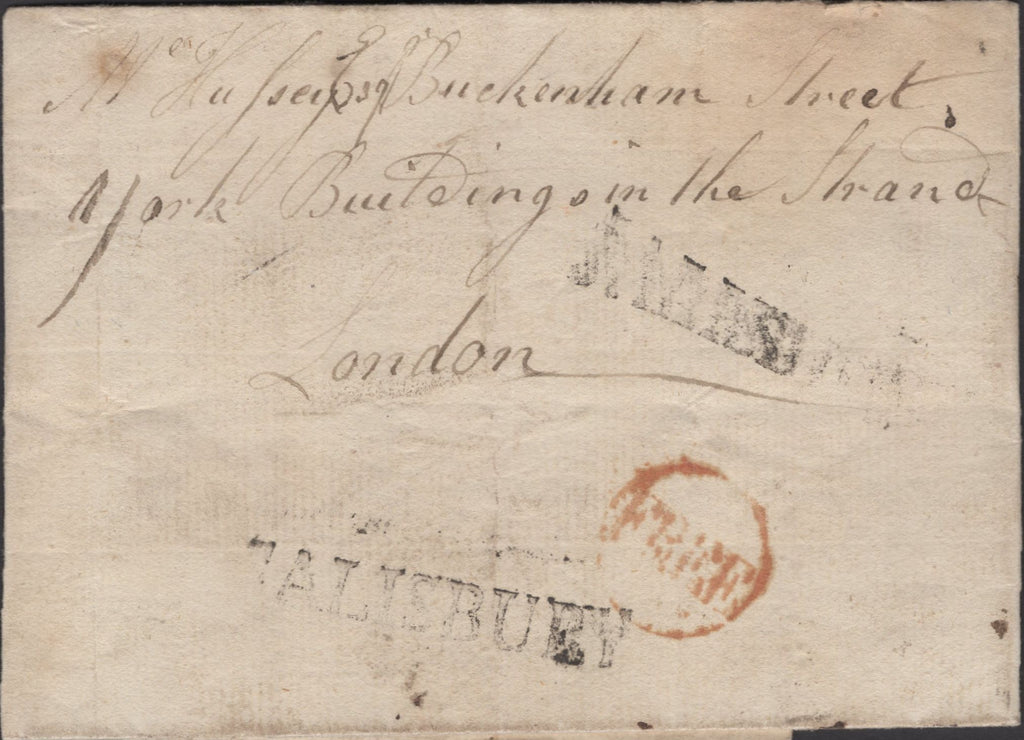 Wm Hussey Esqr Buckenham Street,
York Buildings in the Strand
London
FREE
SALISBURY